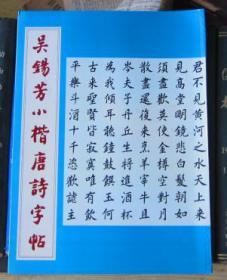 吳錫芳小楷唐詩字帖
君不見黃河之水天上來
見高堂明鏡悲白髮朝如
須盡歡莫使金樽空對月
散盡還復來烹羊宰牛且
岑夫子丹丘生將進酒杯
為我傾耳聽鐘鼓饌玉何
古來聖賢皆寂寞唯有飲
平樂斗酒十千恣歡謔主